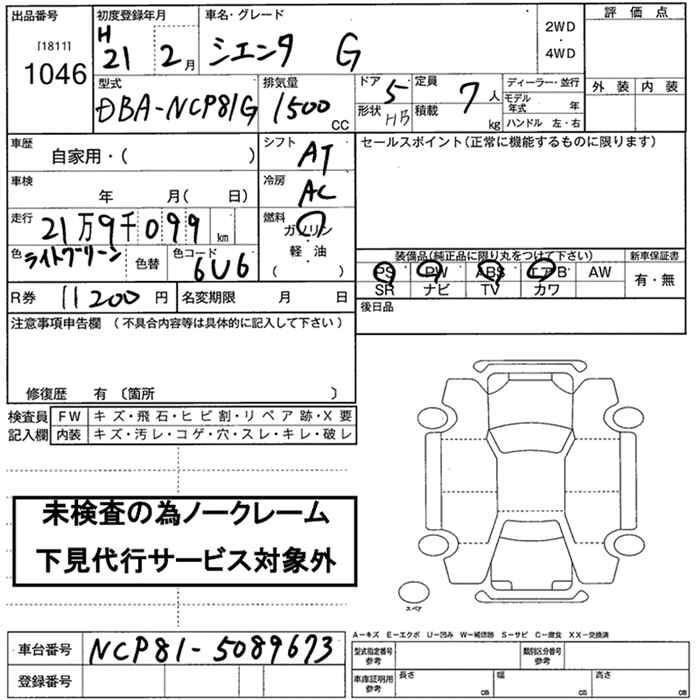 出品番号 初度登録年月 車名・グレード 2WD ・ 4WD 評価点
[1811] H
1046 21 2月 シエンタ G
外装 内装
型式 排気量 ドア 定員 ディーラー・並行
DBA-NCP81G 1500 CC 5 7人 モデル年式 年
形状 HB 積載 kg ハンドル 左・右
車歴 シフト セールスポイント(正常に機能するものに限ります)
自家用・( ) AT
車検 冷房
年 月( 日) AC
走行 燃料
21万9千099 km ガソリン
軽・油
( )
色 色替 色コード
ライトグリーン 6U6
装備品(純正品に限り丸をつけて下さい) 新車保証書
PS PW ABS エアB AW 有・無
SR ナビ TV カワ
R券 11200円 名変期限 月 日 後日品
注意事項申告欄 (不具合内容等は具体的に記入して下さい)
修復歴 有 〔箇所 〕
検査員 FW キズ・飛石・ヒビ割・リペア跡・X要
記入欄 内装 キズ・汚レ・コゲ・穴・スレ・キレ・破レ
未検査の為ノークレーム
下見代行サービス対象外
スペア
A-キズ E-エクボ U-凹み W-補修跡 S-サビ C-腐食 XX-交換済
車台番号 NCP81-5089673
登録番号
型式指定番号 参考 類別区分番号 参考
車庫証明用 参考 長さ cm 幅 cm 高さ cm